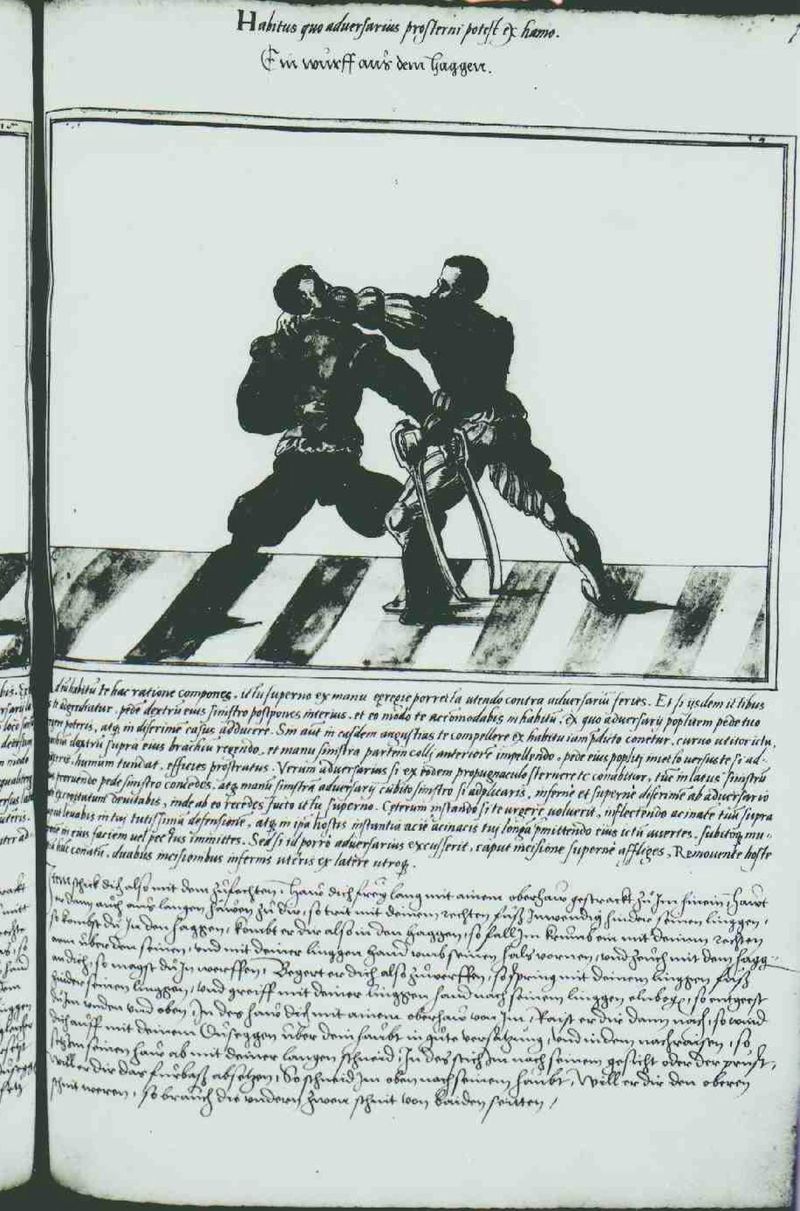 Habitus quo adversarius prosterni potest ex hamo.
Ein wurff aus dem haggen.
habitū te hac ratione compones, si tu superno ex manu egregie porrecta utendo contra adversariū feries. Et si ijsdem ictibus
pede dextrū eius sinistro postpones interius, et eo modo te accommodabis in habitū, ex quo adversarij poplitem pede tuo
poteris, atq in discrime casus adducere. Sin aut in easdem angustias te compellere ex habitu iam dicto conetur, curvo utitor ictu,
dextrū supra eius brachiū regendo, et manu sinistra partem colli anteriorē impellendo, pede eius poplitj inicto versus te si ad
humum tundat, efficies prostratus. Verum adversarius si ex eodem propugnaculo sternere te conabitur, tūc in latus sinistrū
pede sinistro concedes, atq manu sinistra adversarij cubito sinistro si adplicaris, inferne et superne discrime ab adversario
devitabis, inde ab eo recedes facto ictu superno. Ceterum instando si te urgere voluerit, inflectendo acinace tuū supra
levabis in tuj tutissimā defensione, atq in ipa hostis instantia acie acinacis tuj longa pmittendo eius ictū avertes, subitoq mu
in eius faciem vel pectus immittes. Sed si id porro adversarius excusserit, caput incisione superne affliges, Removente hoste
conatū, duabus incisionibus infernis uteris ex latere utroq.
Item schick dich also mit dem zufechten, haw dich frey lang mit ainem oberhaw gestrackt zu Im hinein, hawt
Er dann auch aus langen häwen zu dir, so trit mit deinem rechten fuß Inwendig hinder seinen linggen,
so kombst du In den haggen, kombt er dir also in den haggen, so fall Im krumb ein mit deinem rechten
arm über den seinen, und mit deiner linggen hand umb seinen hals vornen, und zeuch mit dem hagg-
an dich, so magst du In werffen, Begert er dich also zuwerffen, so spring mit deinem linggen fuß
hinder seinen linggen, und greiff mit deiner linggen hand nach seinem linggen elnbogē, so entgeest
du Im unden und oben, In des haw dich mit ainem oberhaw von Im, Raist er dir dann nach, so wind
dich auff mit deinem Duseggen über dein haubt in gute versatzung, und in dem nachraisen, so
setz Im seinen haw ab mit deiner langen schneid, In des stich Im nach seinem gesicht oder der prust,
will er dir das furbaß absetzen, So schneid Im oben nach seinem haubt, Will er dir den oberen
schnit weren, so brauch die undern zwen schnit von baiden seitten,